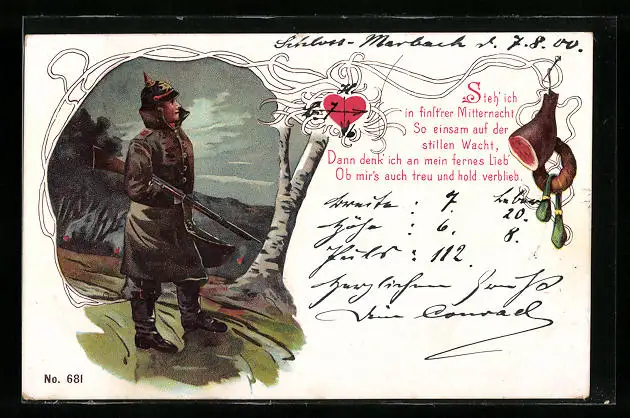 Schloss-Marbach d. 7.8.00.
Steh' ich
in finst'rer Mitternacht
So einsam auf der
stillen Wacht,
Dann denk' ich an mein fernes Lieb'
Ob mir's auch treu und hold verblieb.
Breite : 7 Leber
Höhe : 6. 20.
Puls : 112. 8.
Herzlichen Gruß
Dein Conrad
No. 681